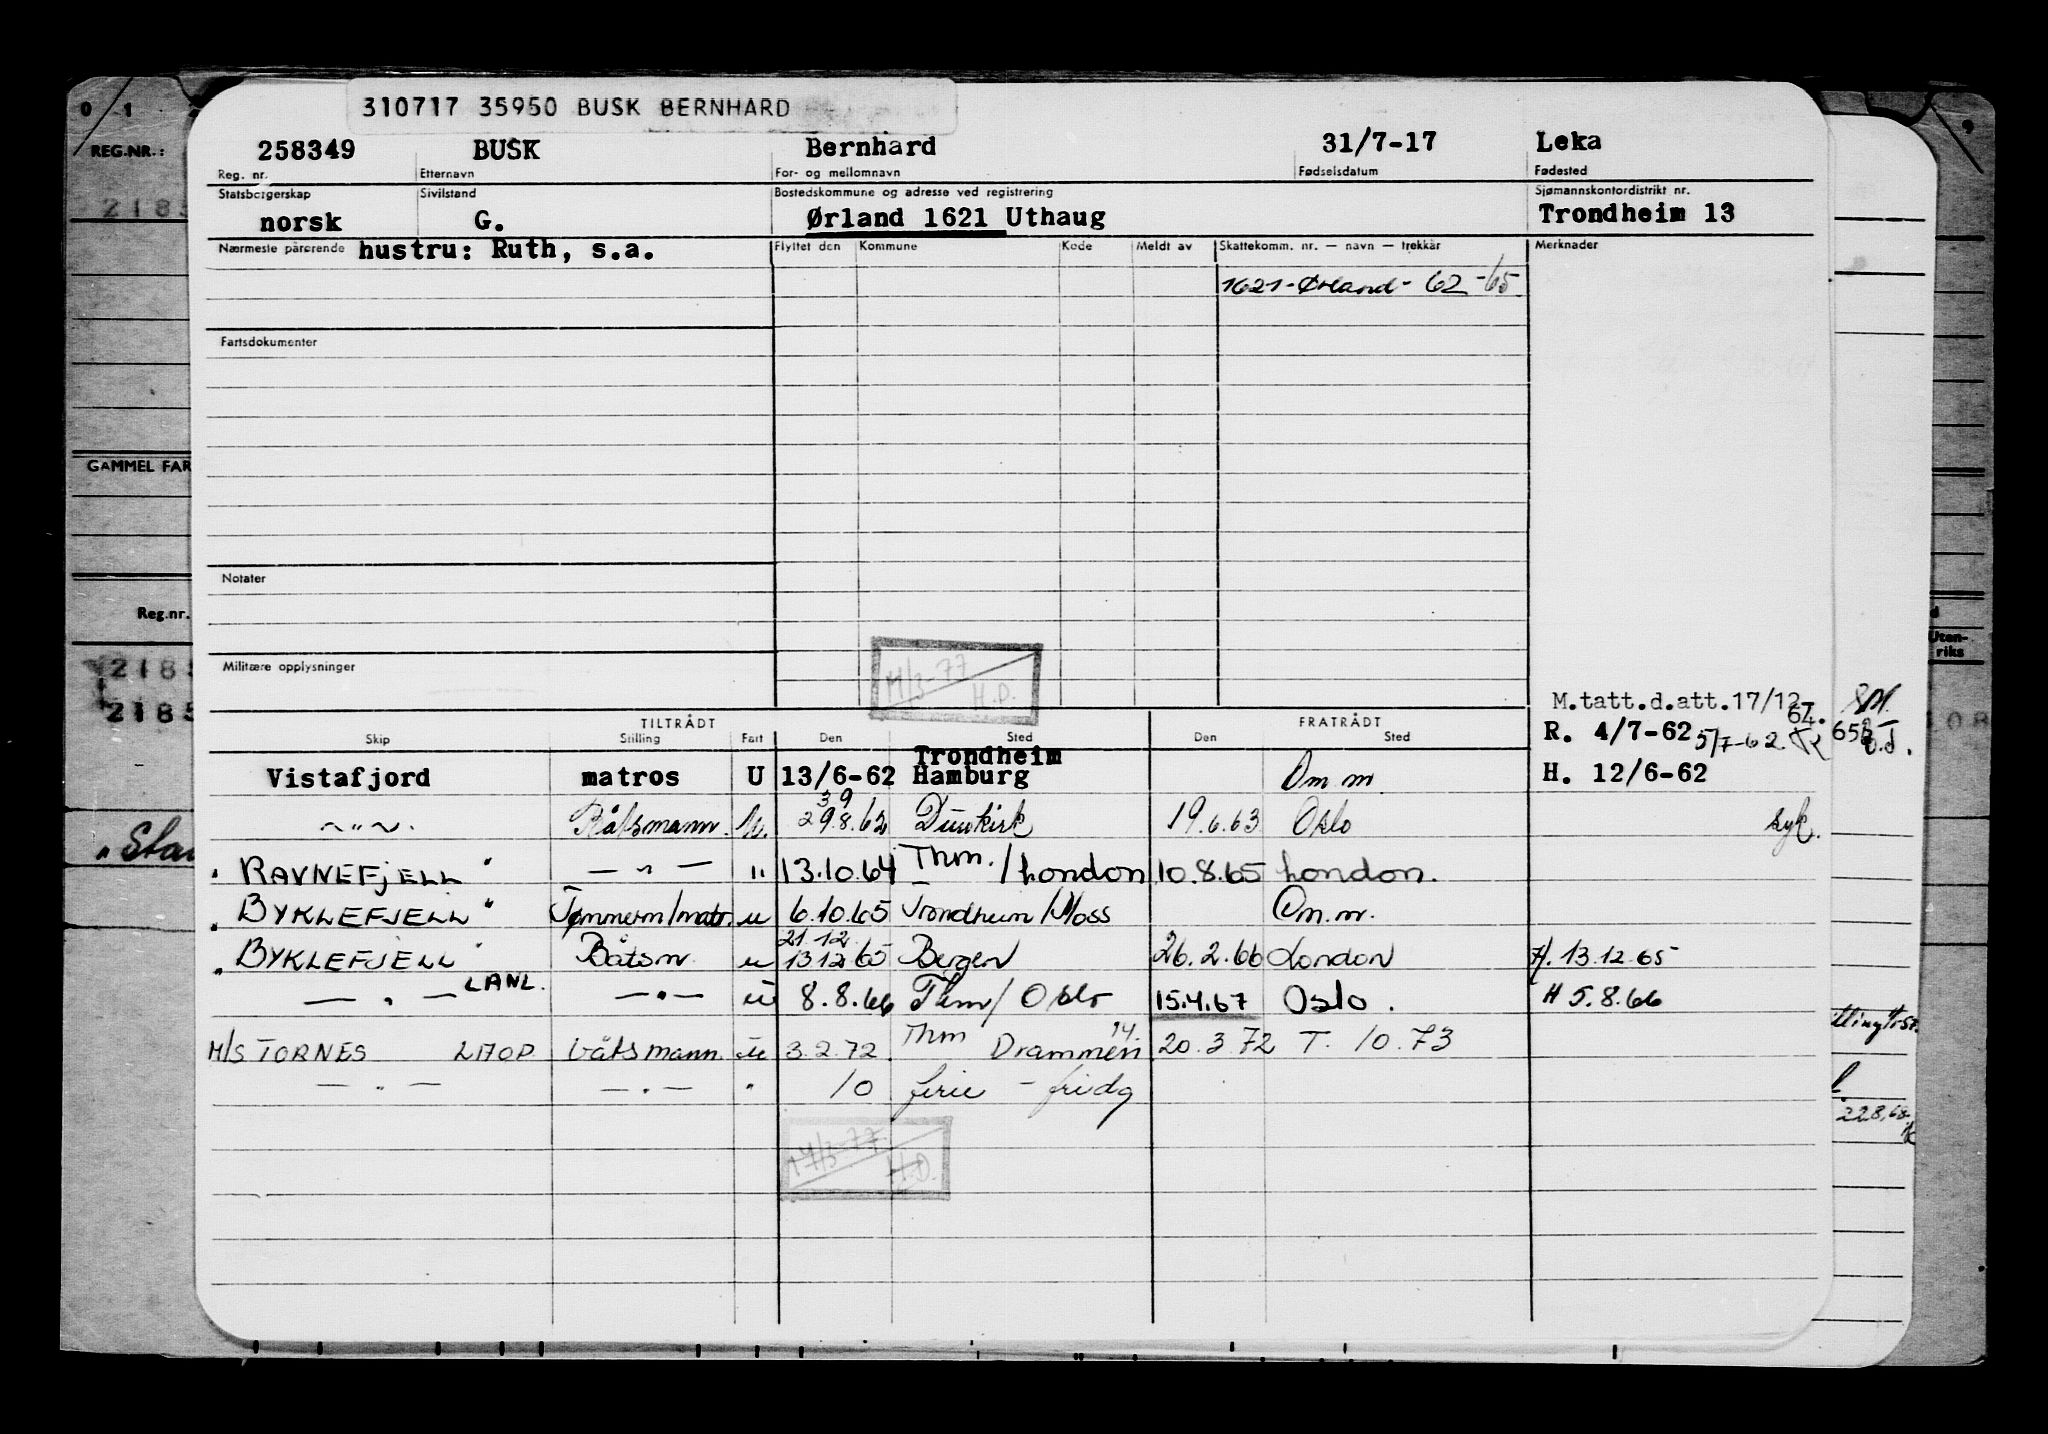 310717 35950 BUSK BERNHARD
REG.NR.:
258349 BUSK Bernhard 31/7-17 Leka
Reg. nr. Etternavn For- og mellomnavn Fødselsdatum Fødested
Statsborgerskap Sivilstand Bostedskommune og adresse ved registrering Sjømannskontordistrikt nr.
norsk G. Ørland 1621 Uthaug Trondheim 13
Nærmeste pårørende hustru: Ruth, s.a. Flyttet den Kommune Kode Meldt av Skattekomm. nr. — navn — trekkår Merknader
1621-Ørland- 62 -65
Fartsdokumenter
GAMMEL FAR
Notater
Reg.nr.
Militære opplysninger
M/3-77
H.D.
M.tatt.d.att.17/12
64.
R. 4/7-62 5/7-62.
TILTRÅDT FRATRÅDT
Skip Stilling Fart Den Sted Den Sted
Trondheim
Vistafjord matros U 13/6-62 Hamburg Om m. H. 12/6-62
39
~"~. Båtsmann. U. 29.8.62 Dunkirk 19.6.63 Oslo syk.
" RAVNEFJELL " — " — " 13.10.64 Thm. / London 10.8.65 London.
" BYKLEFJELL " Tømmerm/matr. u 6.10.65 Trondheim/Moss Om.m.
21 12
" BYKLEFJELL " Båtsm. u 13 12 65 Bergen 26.2.66 London H. 13.12.65
— " — LANL. — " — u 8.8.66 Thm/ Oslo 15.4.67 Oslo. H 5.8.66
14.
M/S TORNES LMOP båtsmann. u 3.2.72 Thm Drammen 20.3.72 T. 10.73
— " — — " — " 10 ferie - fridg
M/3-77
H.D.
Uten-
riks